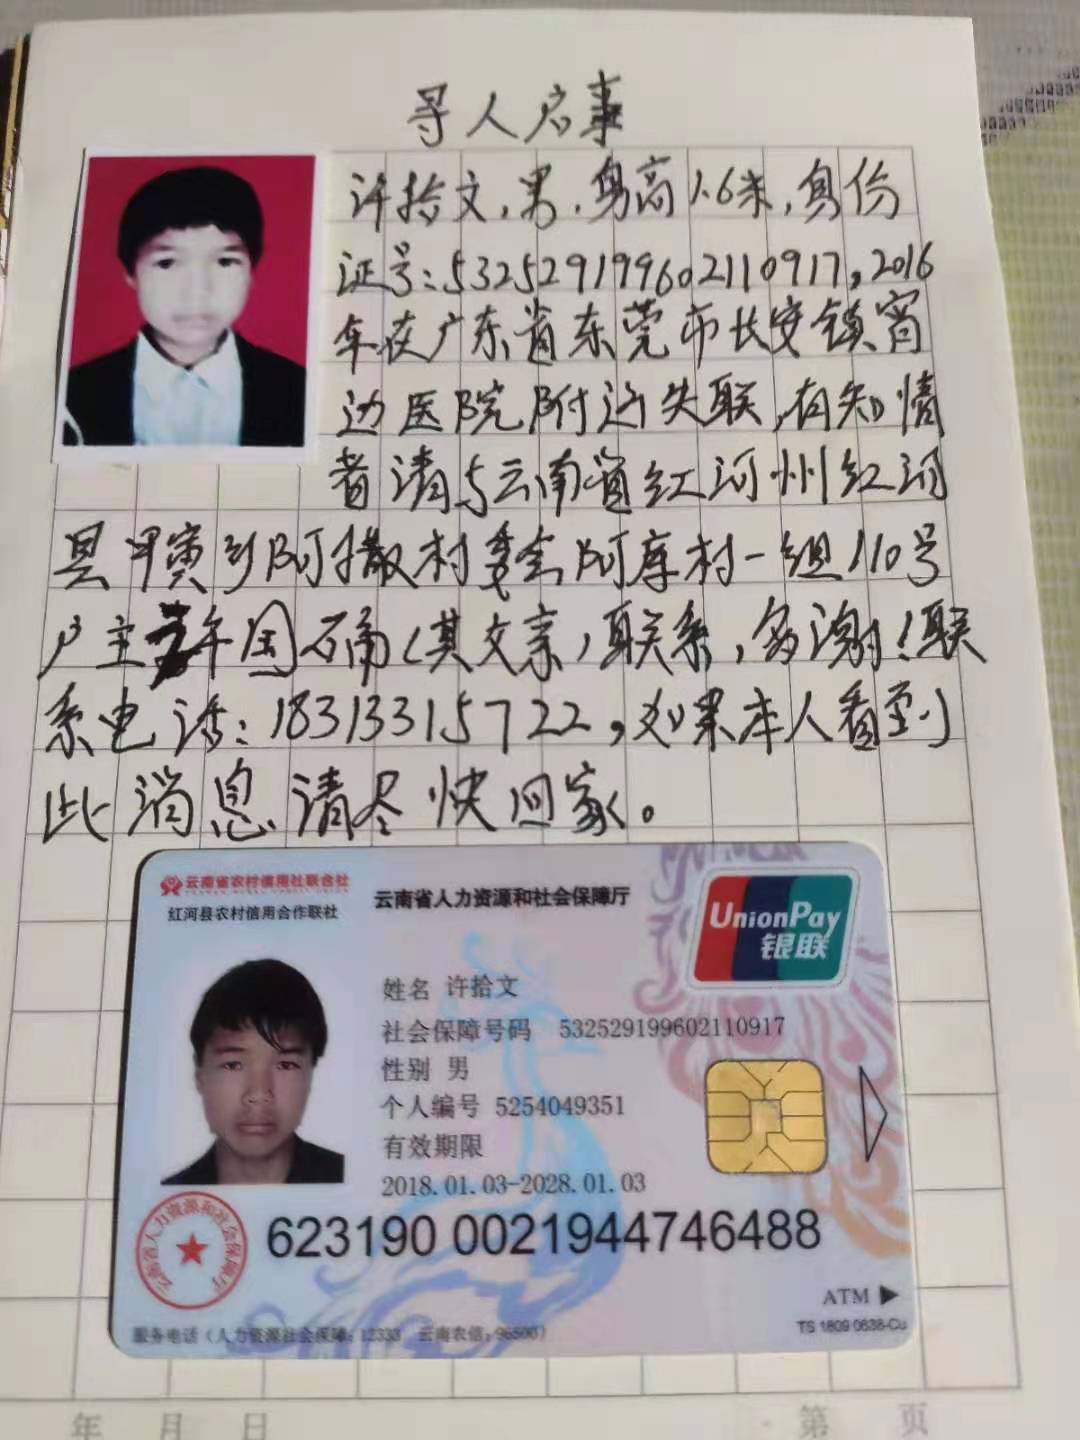 寻人启事
许拾文,男.身高1.6米,身份
证号:532529199602110917,2016
年在广东省东莞市长安镇宵
边医院附近失联,有知情
者请与云南省红河州红河
县甲寅乡阿撒村委会阿库村一组110号
户主许国硒(其父亲)联系,多谢!联
系电话:18313315722,如果本人看到
此消息请尽快回家。
云南省农村信用社联合社
红河县农村信用合作联社
云南省人力资源和社会保障厅
UnionPay
银联
姓名 许拾文
社会保障号码 532529199602110917
性别 男
个人编号 5254049351
有效期限
2018.01.03-2028.01.03
623190 0021944746488
云南省人力资源和社会保障厅
ATM
TS 1809 0638-Cu
服务电话(人力资源社会保障:12333 云南农信:96500)
年 月 日
第 页